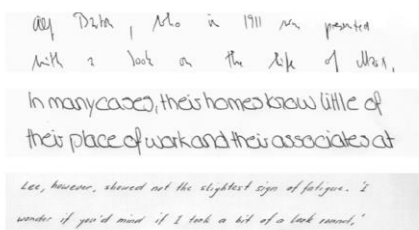 who in 1911 was presented
with a book on the life of
In many cases, their homes know little of
their place of work and their associates at
Lee, however, showed not the slightest sign of fatigue. 'I
wonder if you'd mind if I took a bit of a look round,'